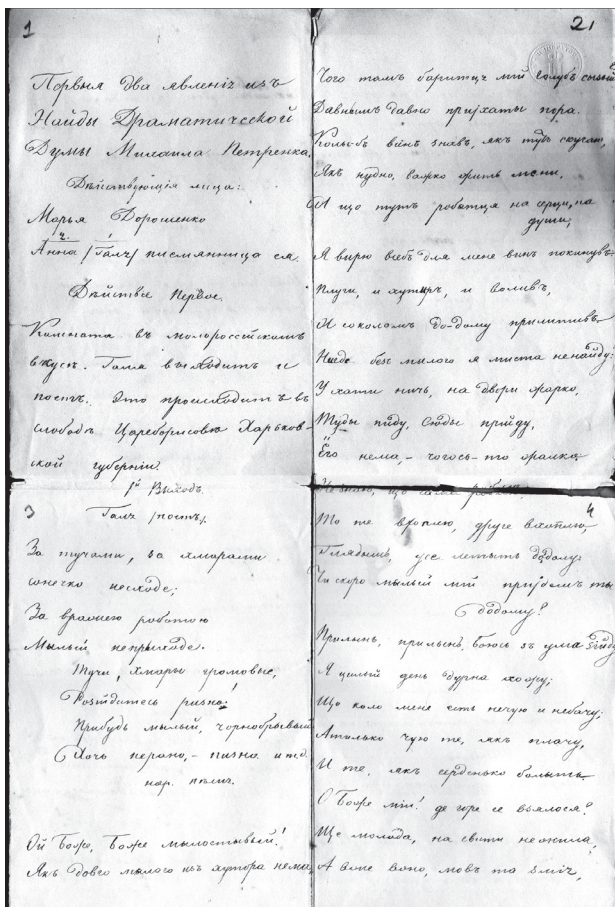 1
Первыя два явленія изъ
Найды Драматической
Думы Михаила Петренка.
Дѣйствующія лица:
Марья Дорошенко
Анна /Галя/ писмянница ея.
Дѣйствіе Первое.
Комната въ малороссійскомъ
вкусѣ. Галя выходитъ и
поетъ. Это происходитъ въ
слободѣ Цареборисовѣ Харьков-
ской губерніи.
1й Выходъ.
3
Галя /поетъ/.
За тучами, за хмарами
сонечко несходе;
За вражею роботою
Мылый неприходе.
Тучи, хмары громовые,
Розійдитесь ризно;
Прибудь мылый, чорнобрывый
Хочь нерано, - пизно и т.д.
нар. писня.
Ой Боже, Боже мылостывый!
Якъ довго мылого изъ хутора нема
2
Чого тамъ баритця мій голубъ сызый
Давнымъ давно пріѣхаты пора.
Колы-бъ винъ знавъ, якъ тутъ скучаю,
Якъ нудно, важко жить мени,
И що тутъ робытця на серци, на
души;
Я вирю всебъ для мене винъ покинувъ
Плуги, и хутиръ, и воливъ,
И соколомъ до-дому прилитивъ
Нигде безъ мылого я миста ненайду:
У хати ничь, на двори жарко,
Туды пиду, сюды прийду,
Его нема, - чогось-то жалко
Не знаю, що
4
То те вхоплю, друге вхоплю,
Глядышь, усе летыть додолу:
Чи скоро мылый мій пріѣдешь ты
додому?
Прилынь, прилынь, боюсь зъ ума зійду
Я цилый день дурна хожу;
Що коло мене есть нечую и небачу;
А только чую те, якъ плачу,
И те, якъ серденько болыть
О Боже мій! де горе се взялося?
Ще молода, на свити нежила,
А вже воно, мовъ та зміч,